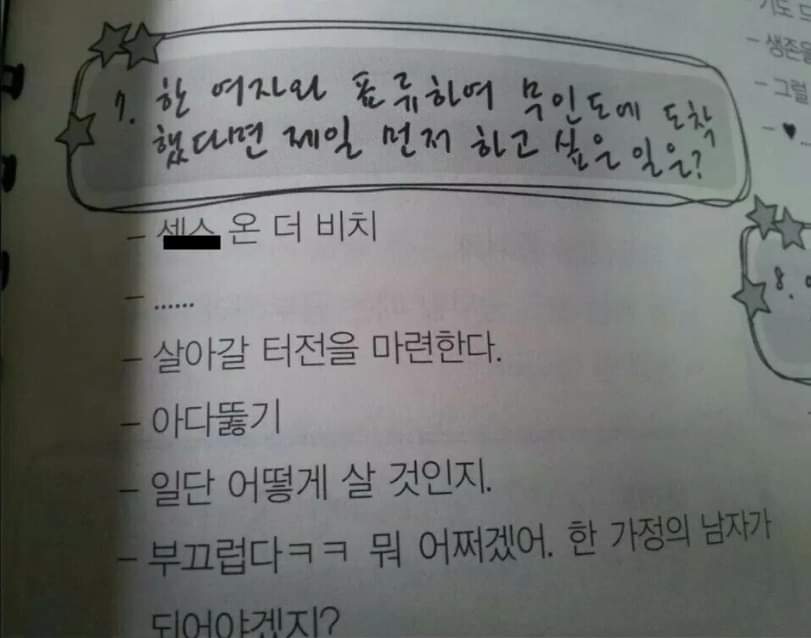 7. 한 여자와 표류하여 무인도에 도착
했다면 제일 먼저 하고 싶은 일은?
- 섹스 온 더 비치
- ......
- 살아갈 터전을 마련한다.
- 아다뚫기
- 일단 어떻게 살 것인지.
- 부끄럽다ㅋㅋ 뭐 어쩌겠어. 한 가정의 남자가
되어야겠지?
- 생존을
- 그럴
- ♥
8.